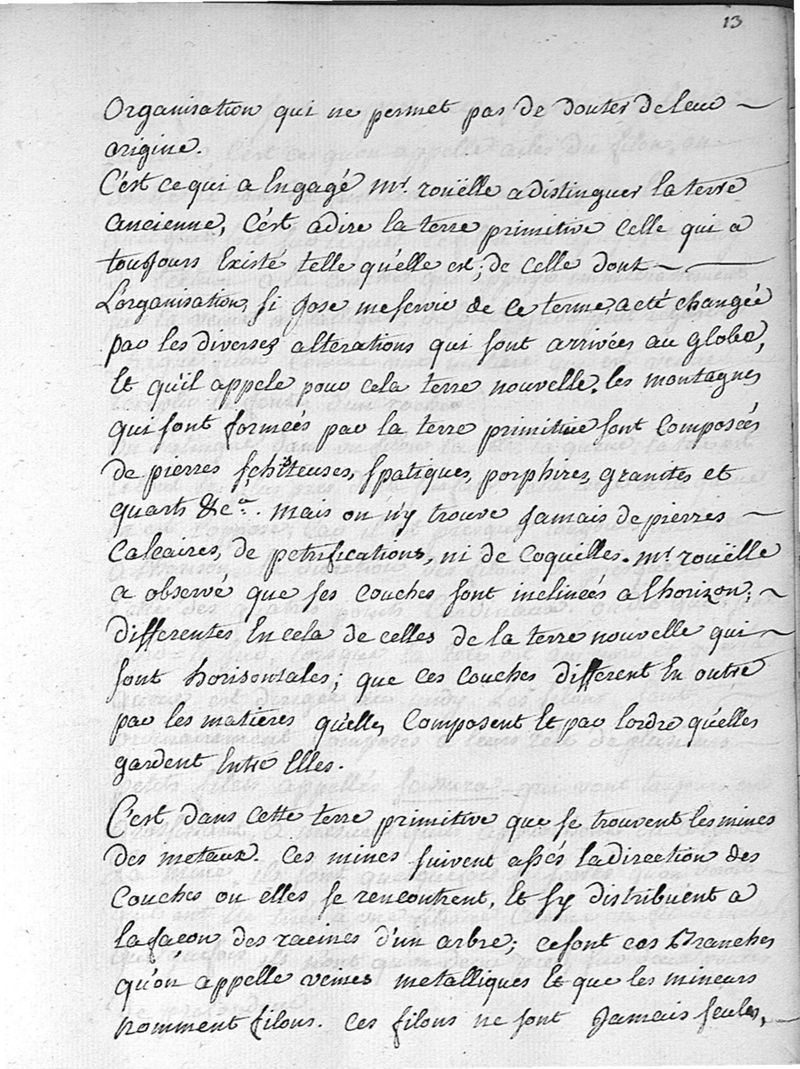 13
Organisation qui ne permet pas de douter de leur
origine.
C'est ce qui a Engagé Mr. rouëlle a distinguer la terre
ancienne, C'est a dire la terre primitive celle qui a
toujours Existé telle qu'elle est; de celle dont
L'organisation, si j'ose me servir de ce terme, a eté changée
par les diverses alterations qui sont arrivées au globe,
Et qu'il appele pour cela terre nouvelle. les montagnes
qui sont formées par la terre primitive sont Composées
de pierres schiteuses, spatiques, porphires, granites et
quarts &ca. Mais on n'y trouve Jamais de pierres
Calcaires, de petrifications, ni de Coquilles. Mr. rouëlle
a observé que ses couches sont inclinées a l'horizon;
differentes En cela de celles de la terre nouvelle qui
sont horisontales; que ces couches different En outre
par les matières qu'elles Composent Et par l'ordre qu'elles
gardent Entre Elles.
C'est dans Cette terre primitive que se trouvent les mines
des metaux. Ces mines suivent assés la direction des
Couches ou elles se rencontrent, Et s'y distribuent a
la façon des racines d'un arbre; ce sont ces Branches
qu'on appelle veines metalliques Et que les mineurs
nomment filons. Ces filons ne sont Jamais seules,